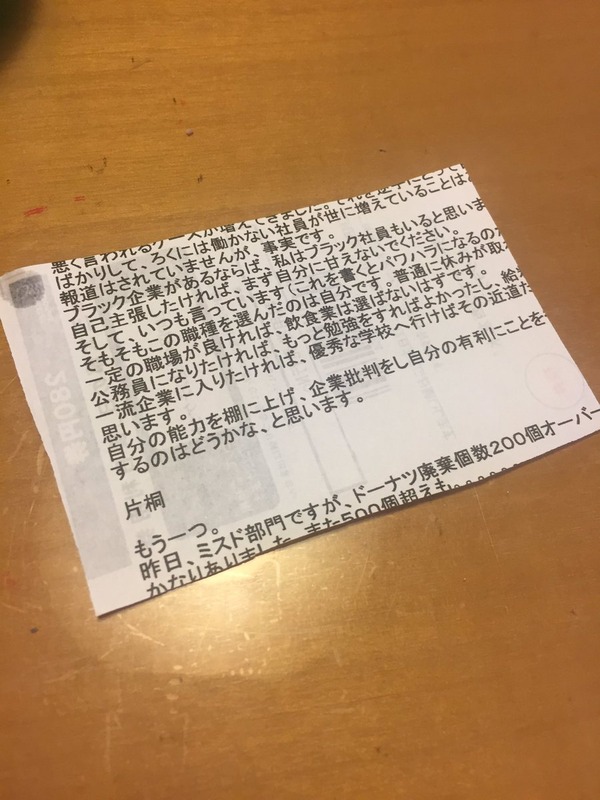 悪く言われるケースが増えてきました。それを逆手にとって
ばかりして、ろくには働かない社員が世に増えていることは
報道はされていませんが、事実です。
ブラック企業があるならば、私はブラック社員もいると思いま
自己主張したければ、まず自分に甘えないでください。
そして、いつも言っています(これを書くとパワハラになるのか
そもそもこの職種を選んだのは自分です。普通に休みが取
一定の職場が良ければ、飲食業は選ばないはずです。
公務員になりたければ、もっと勉強をすればよかったし、給
一流企業に入りたければ、優秀な学校へ行けばその近道だ
思います。
自分の能力を棚に上げ、企業批判をし自分の有利にことを
するのはどうかな、と思います。
片桐
もう一つ。
昨日、ミスド部門ですが、ドーナツ廃棄個数200個オーバー
かなりありました。また500個超えも。